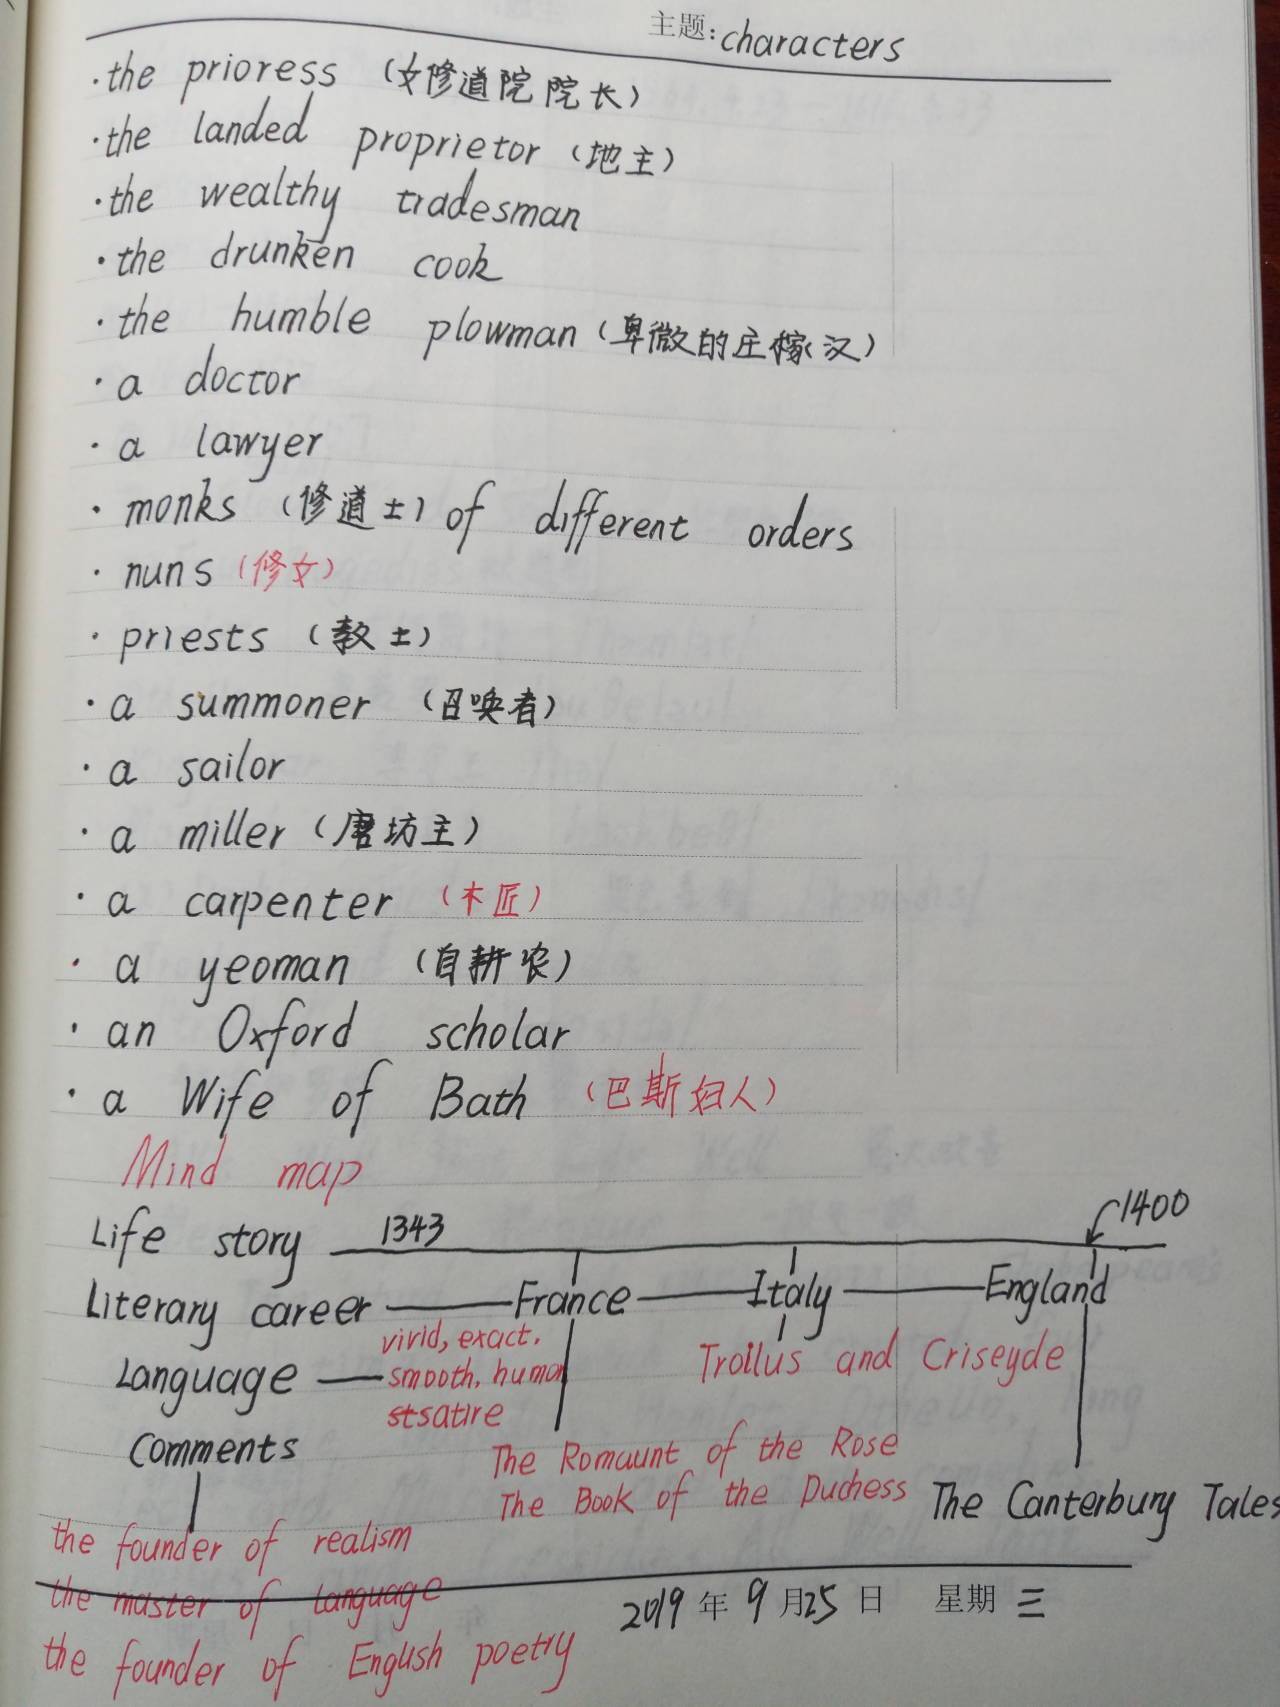 主题: characters
·the prioress (女修道院院长)
·the landed proprietor (地主)
·the wealthy tradesman
·the drunken cook
·the humble plowman (卑微的庄稼汉)
·a doctor
·a lawyer
·monks (修道士) of different orders
·nuns (修女)
·priests (教士)
·a summoner (召唤者)
·a sailor
·a miller (磨坊主)
·a carpenter (木匠)
·a yeoman (自耕农)
·an Oxford scholar
·a Wife of Bath (巴斯妇人)
Mind map
Life story 1343 1400
Literary career France Italy England
vivid, exact,
Language smooth, human
stsatire
Troilus and Criseyde
Comments
The Romaunt of the Rose
The Book of the Duchess The Canterbury Tales
the founder of realism
the master of language
the founder of English poetry
2019年9月25日 星期三